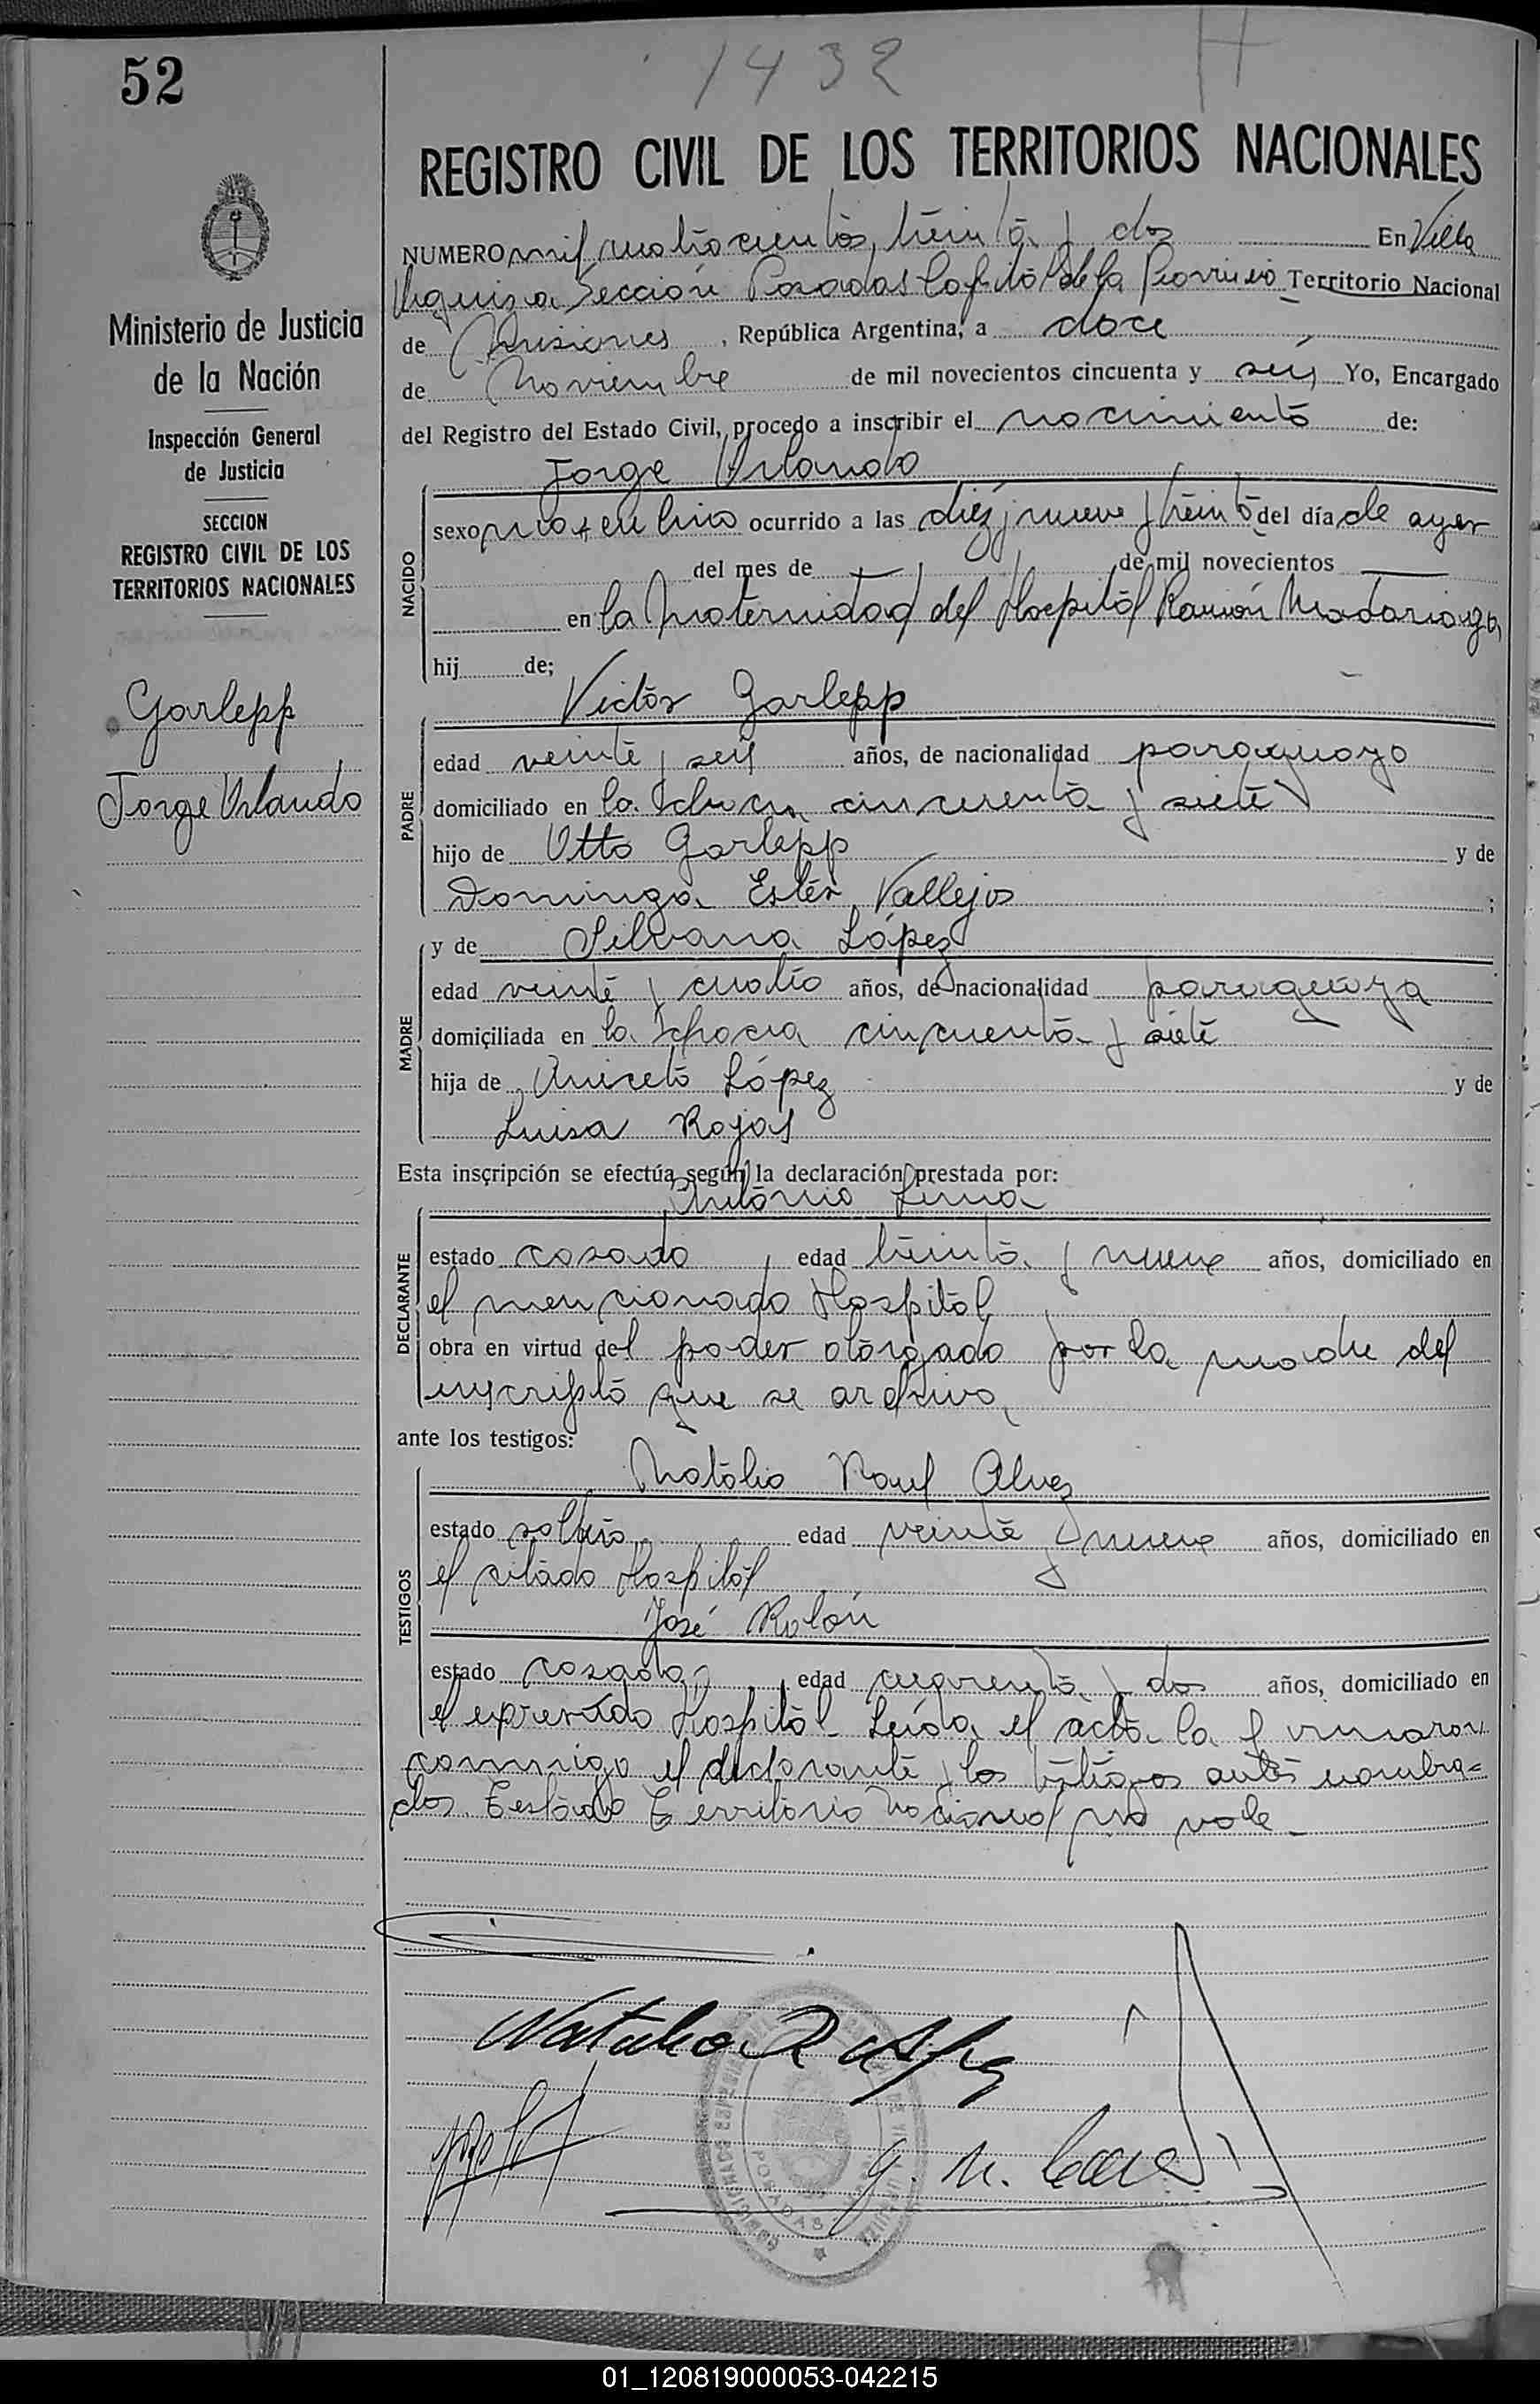 52
1432 H
REGISTRO CIVIL DE LOS TERRITORIOS NACIONALES
NUMERO mil cuatrocientos treinta y dos En Villa
Urquiza Sección Posadas Capital de la Provincia Territorio Nacional
de Misiones, República Argentina, a doce
de Noviembre de mil novecientos cincuenta y seis Yo, Encargado
del Registro del Estado Civil, procedo a inscribir el nacimiento de:
Jorge Orlando
NACIDO
sexo masculino ocurrido a las diez y nueve y treinta del día de ayer
del mes de — de mil novecientos —
en la Maternidad del Hospital Ramón Madariaga
hij de;
Victor Garlepp
PADRE
edad veinte y seis años, de nacionalidad paraguayo
domiciliado en la Chacra cincuenta y siete
hijo de Otto Garlepp y de
Dominga Ester Vallejos ;
MADRE
y de Silvana López
edad veinte y cuatro años, de nacionalidad paraguaya
domiciliada en la Chacra cincuenta y siete
hija de Aniceto López y de
Luisa Rojas
Esta inscripción se efectúa según la declaración prestada por:
Antonio Lima
DECLARANTE
estado casado edad treinta y nueve años, domiciliado en
el mencionado Hospital
obra en virtud del poder otorgado por la madre del
inscripto que se archiva
ante los testigos:
Natalio Raul Alvez
TESTIGOS
estado soltero edad veinte y nueve años, domiciliado en
el citado Hospital
José Rolón
estado casado edad cuarenta y dos años, domiciliado en
el expresado Hospital - Leída el acta la firmaron
conmigo el declarante y los testigos antes nombra=
dos. Testado Territorio Nacional no vale -
Ministerio de Justicia
de la Nación
Inspección General
de Justicia
SECCION
REGISTRO CIVIL DE LOS
TERRITORIOS NACIONALES
Garlepp
Jorge Orlando
Natalio R
POSADAS
01_120819000053-042215